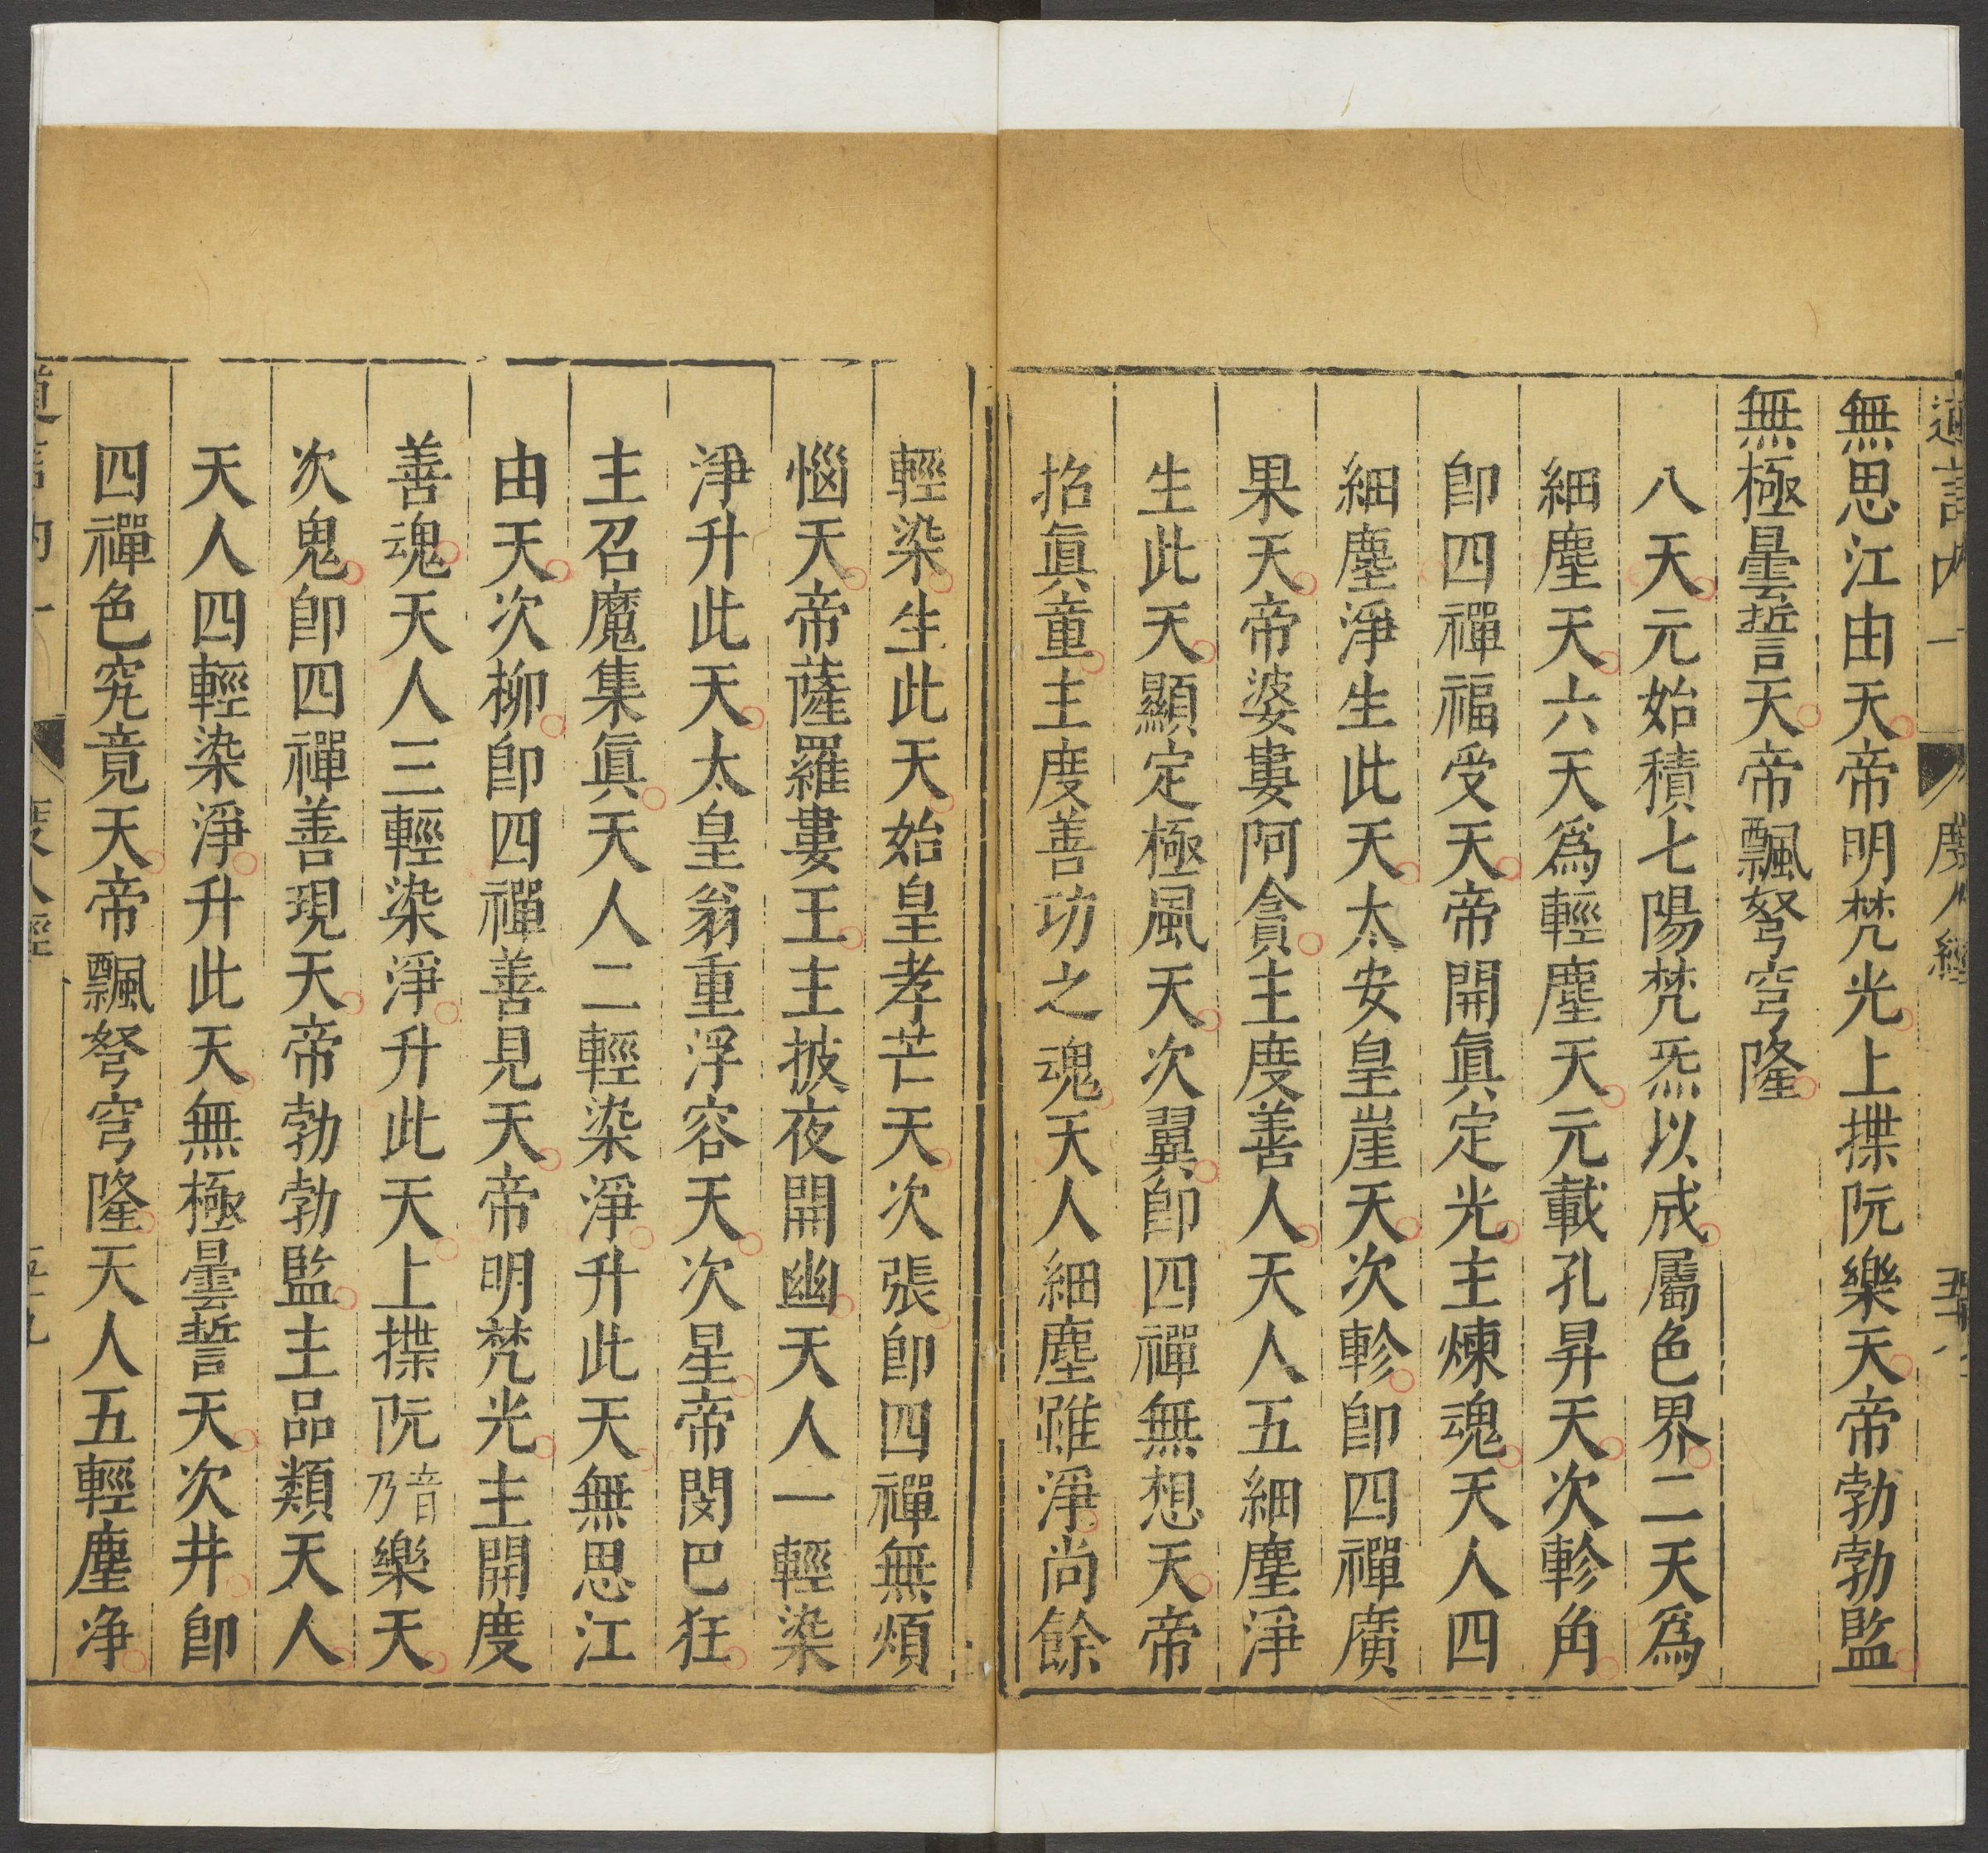 度人經
無思江由天帝明梵光上揲阮樂天帝勃勃監
無極曇誓天帝飄弩穹隆
八天元始積七陽梵炁以成屬色界二天爲
細塵天六天爲輕塵天元載孔昇天次軫角
卽四禪福受天帝開眞定光主煉魂天人四
細塵淨生此天太安皇崖天次軫卽四禪廣
果天帝婆婁阿貪主度善人天人五細塵淨
生此天顯定極風天次翼卽四禪無想天帝
招眞童主度善功之魂天人細塵雖淨尚餘
輕染生此天始皇孝芒天次張卽四禪無煩
惱天帝薩羅婁王主披夜開幽天人一輕染
淨升此天太皇翁重浮容天次星帝閔巴狂
主召魔集眞天人二輕染淨升此天無思江
由天次柳卽四禪善見天帝明梵光主開度
善魂天人三輕染淨升此天上揲阮音乃樂天
次鬼卽四禪善現天帝勃勃監主品類天人
天人四輕染淨升此天無極曇誓天次井卽
四禪色究竟天帝飄弩穹隆天人五輕塵净